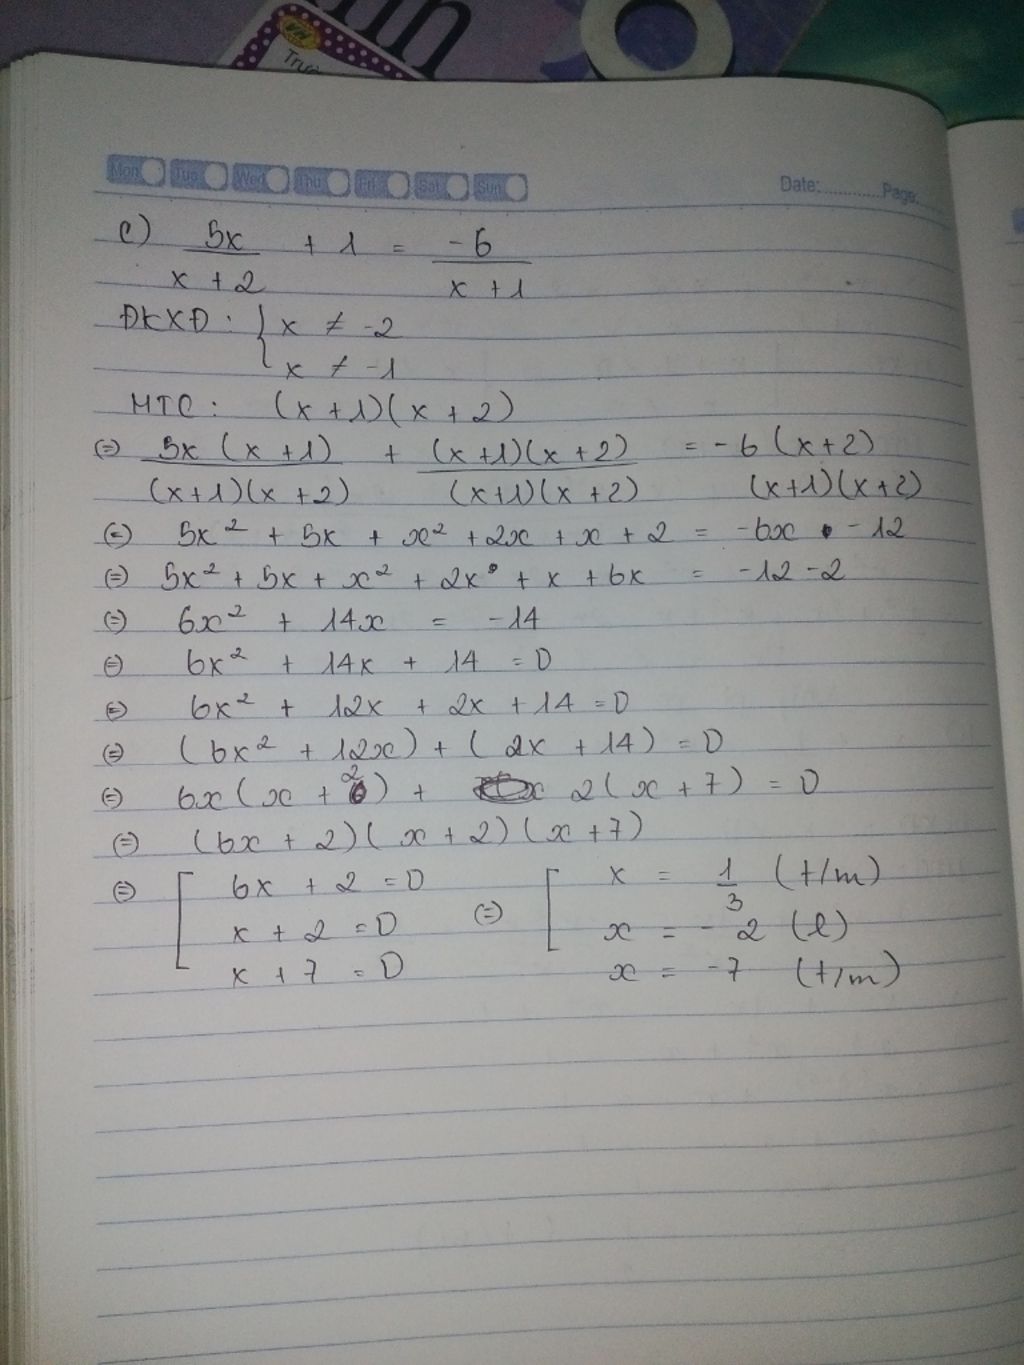 Trườ
Mon Tue Wed Thu Fri Sat Sun Date:............Page:
c) 5x/(x + 2) + 1 = -6/(x + 1)
ĐKXĐ: { x ≠ -2
x ≠ -1
MTC: (x + 1)(x + 2)
(=) 5x (x + 1)/((x+1)(x + 2)) + (x+1)(x + 2)/((x+1)(x + 2)) = -6 (x+2)/((x+1)(x+2))
(=) 5x² + 5x + x² + 2x + x + 2 = -6x - 12
(=) 5x² + 5x + x² + 2x + x + 6x = -12 - 2
(=) 6x² + 14x = -14
(=) 6x² + 14x + 14 = 0
(=) 6x² + 12x + 2x + 14 = 0
(=) (6x² + 12x) + (2x + 14) = 0
(=) 6x (x + 2) + 2(x + 7) = 0
(=) (6x + 2)(x + 2)(x + 7)
(=) [ 6x + 2 = 0 (=) [ x = 1/3 (t/m)
x + 2 = 0 x = -2 (l)
x + 7 = 0 x = -7 (t/m)